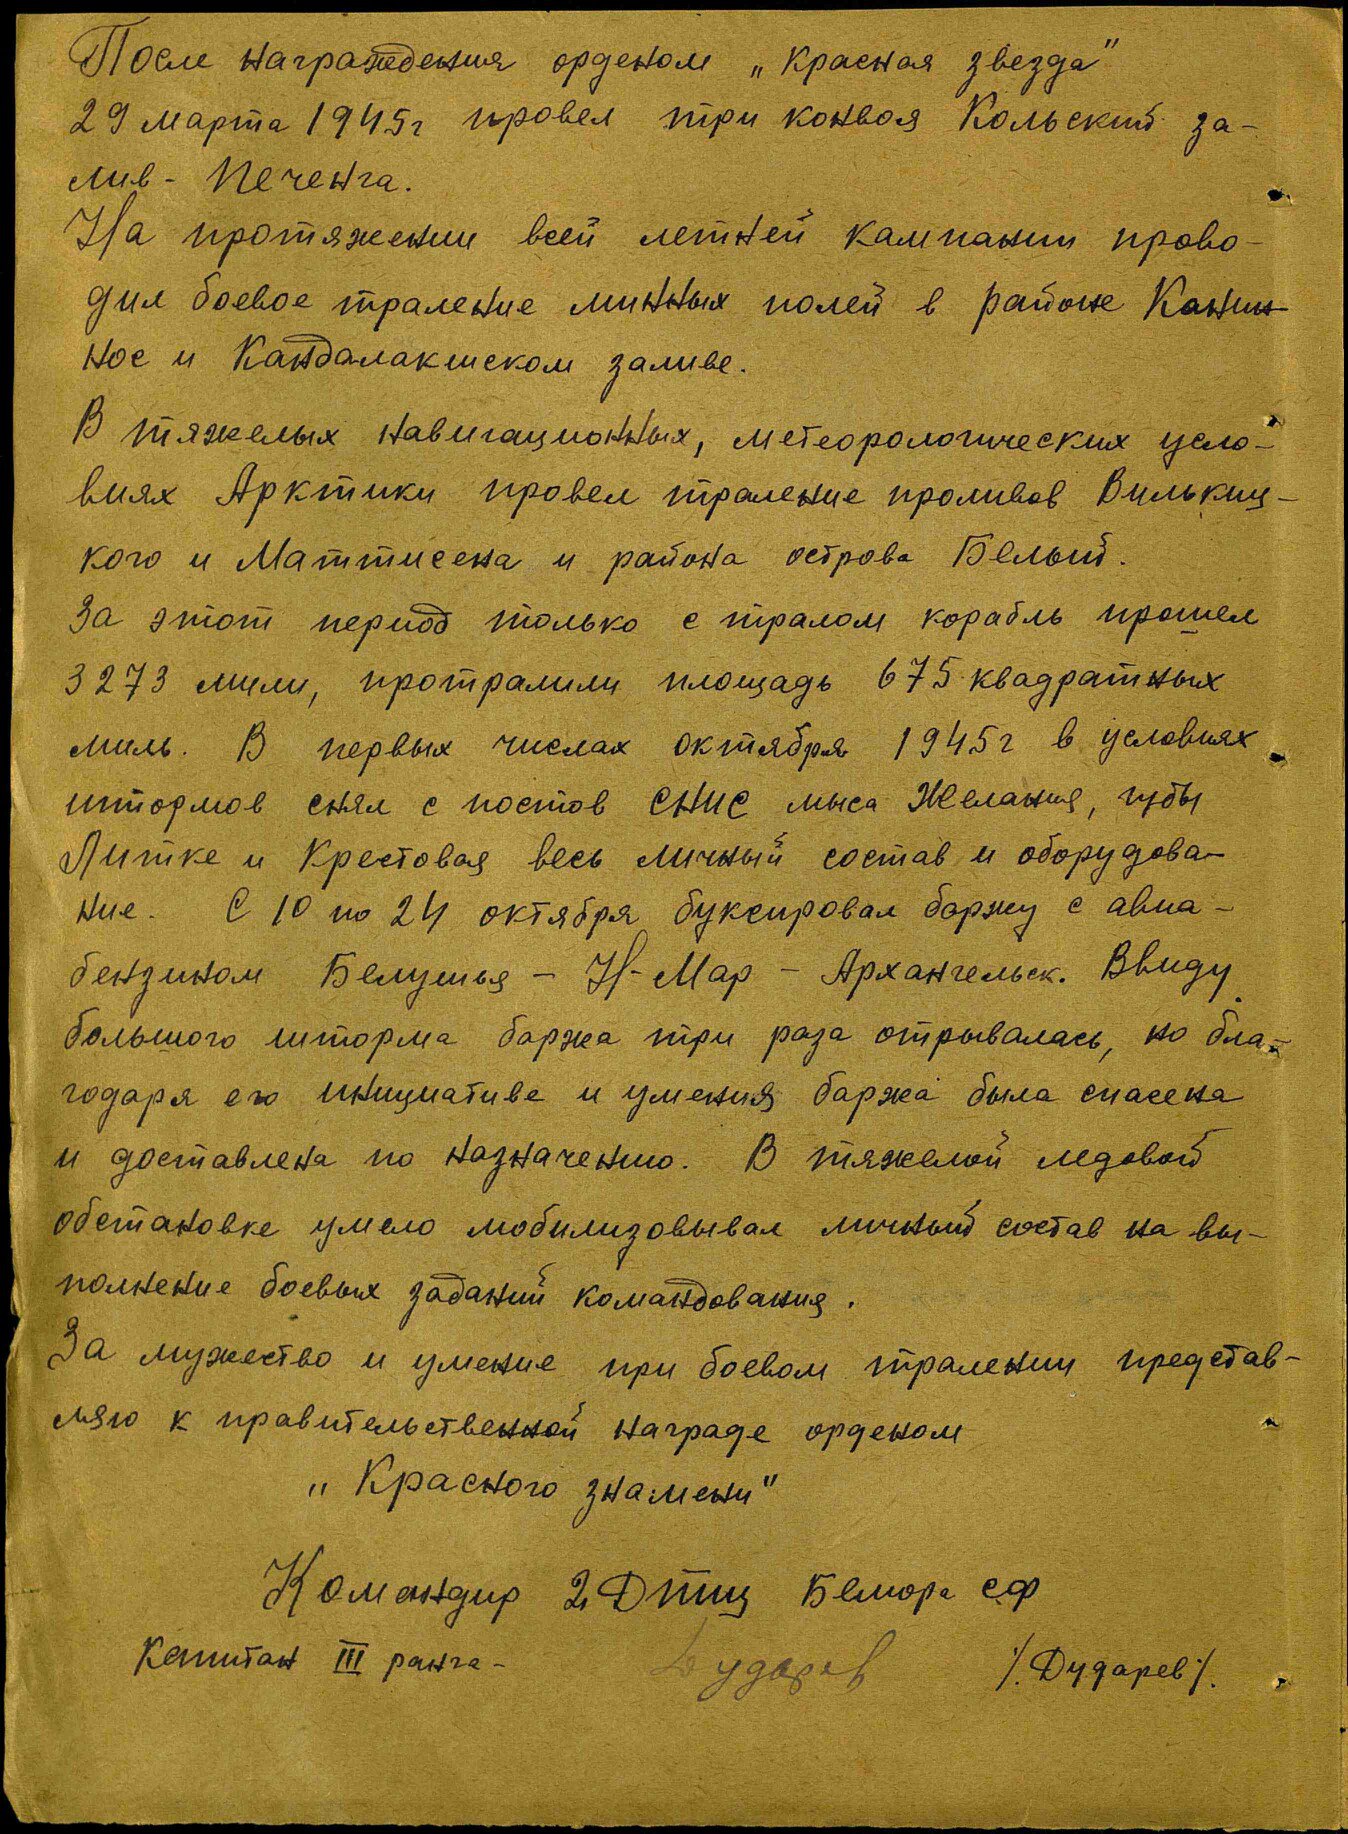 После награждения орденом „Красная звезда"
29 марта 1945г провел три конвоя Кольский за-
лив - Печенга.
На протяжении всей летней кампании прово-
дил боевое траление минных полей в районе Канин
нос и Кандалакшском заливе.
В тяжелых навигационных, метеорологических усло-
виях Арктики провел траление проливов Вилькиц-
кого и Маттисена и района острова Белый.
За этот период только с тралом корабль прошел
3273 мили, протралили площадь 675 квадратных
миль. В первых числах октября 1945г в условиях
штормов снял с постов СНИС мыса Желания, губы
Литке и Крестовая весь личный состав и оборудова-
ние. С 10 по 24 октября буксировал баржу с авиа-
бензином Белушья - Н-Мар - Архангельск. Ввиду
большого шторма баржа три раза отрывалась, но бла-
годаря его инициативе и умения баржа была спасена
и доставлена по назначению. В тяжелой ледовой
обстановке умело мобилизовывал личный состав на вы-
полнение боевых заданий командования.
За мужество и умение при боевом тралении представ-
ляю к правительственной награде орденом
„Красного знамени"
Командир 2 ДТЩ Белмора СФ
Капитан III ранга - Дударев /.Дударев/.